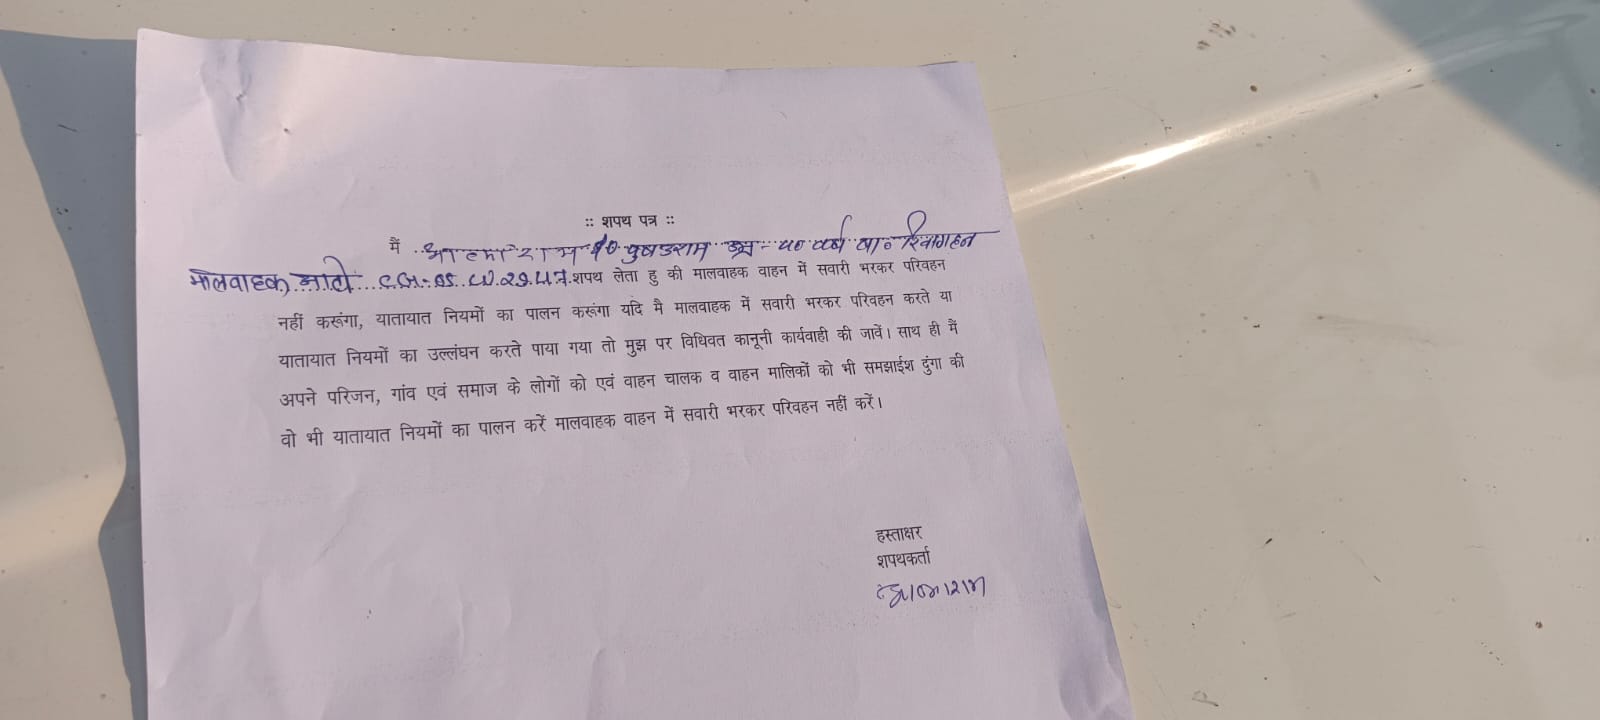 :: शपथ पत्र ::
मैं उम्र - 40 वर्ष सा०
मालवाहक शपथ लेता हु की मालवाहक वाहन में सवारी भरकर परिवहन
नहीं करूंगा, यातायात नियमों का पालन करूंगा यदि मै मालवाहक में सवारी भरकर परिवहन करते या
यातायात नियमों का उल्लंघन करते पाया गया तो मुझ पर विधिवत कानूनी कार्यवाही की जावें। साथ ही मैं
अपने परिजन, गांव एवं समाज के लोगों को एवं वाहन चालक व वाहन मालिकों को भी समझाईश दुंगा की
वो भी यातायात नियमों का पालन करें मालवाहक वाहन में सवारी भरकर परिवहन नहीं करें।
हस्ताक्षर
शपथकर्ता